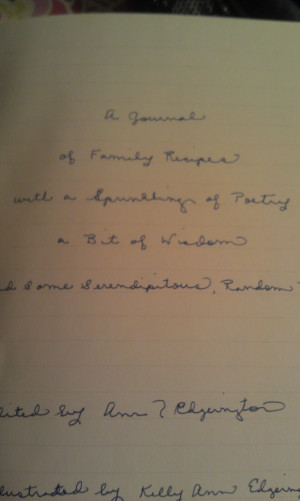 A Journal
of Family Recipes
with a Sprinkling of Poetry
a Bit of Wisdom
d Some Serendipitous, Random
dited by Ann Edgerington
lustrated by Kelly Ann Edgering